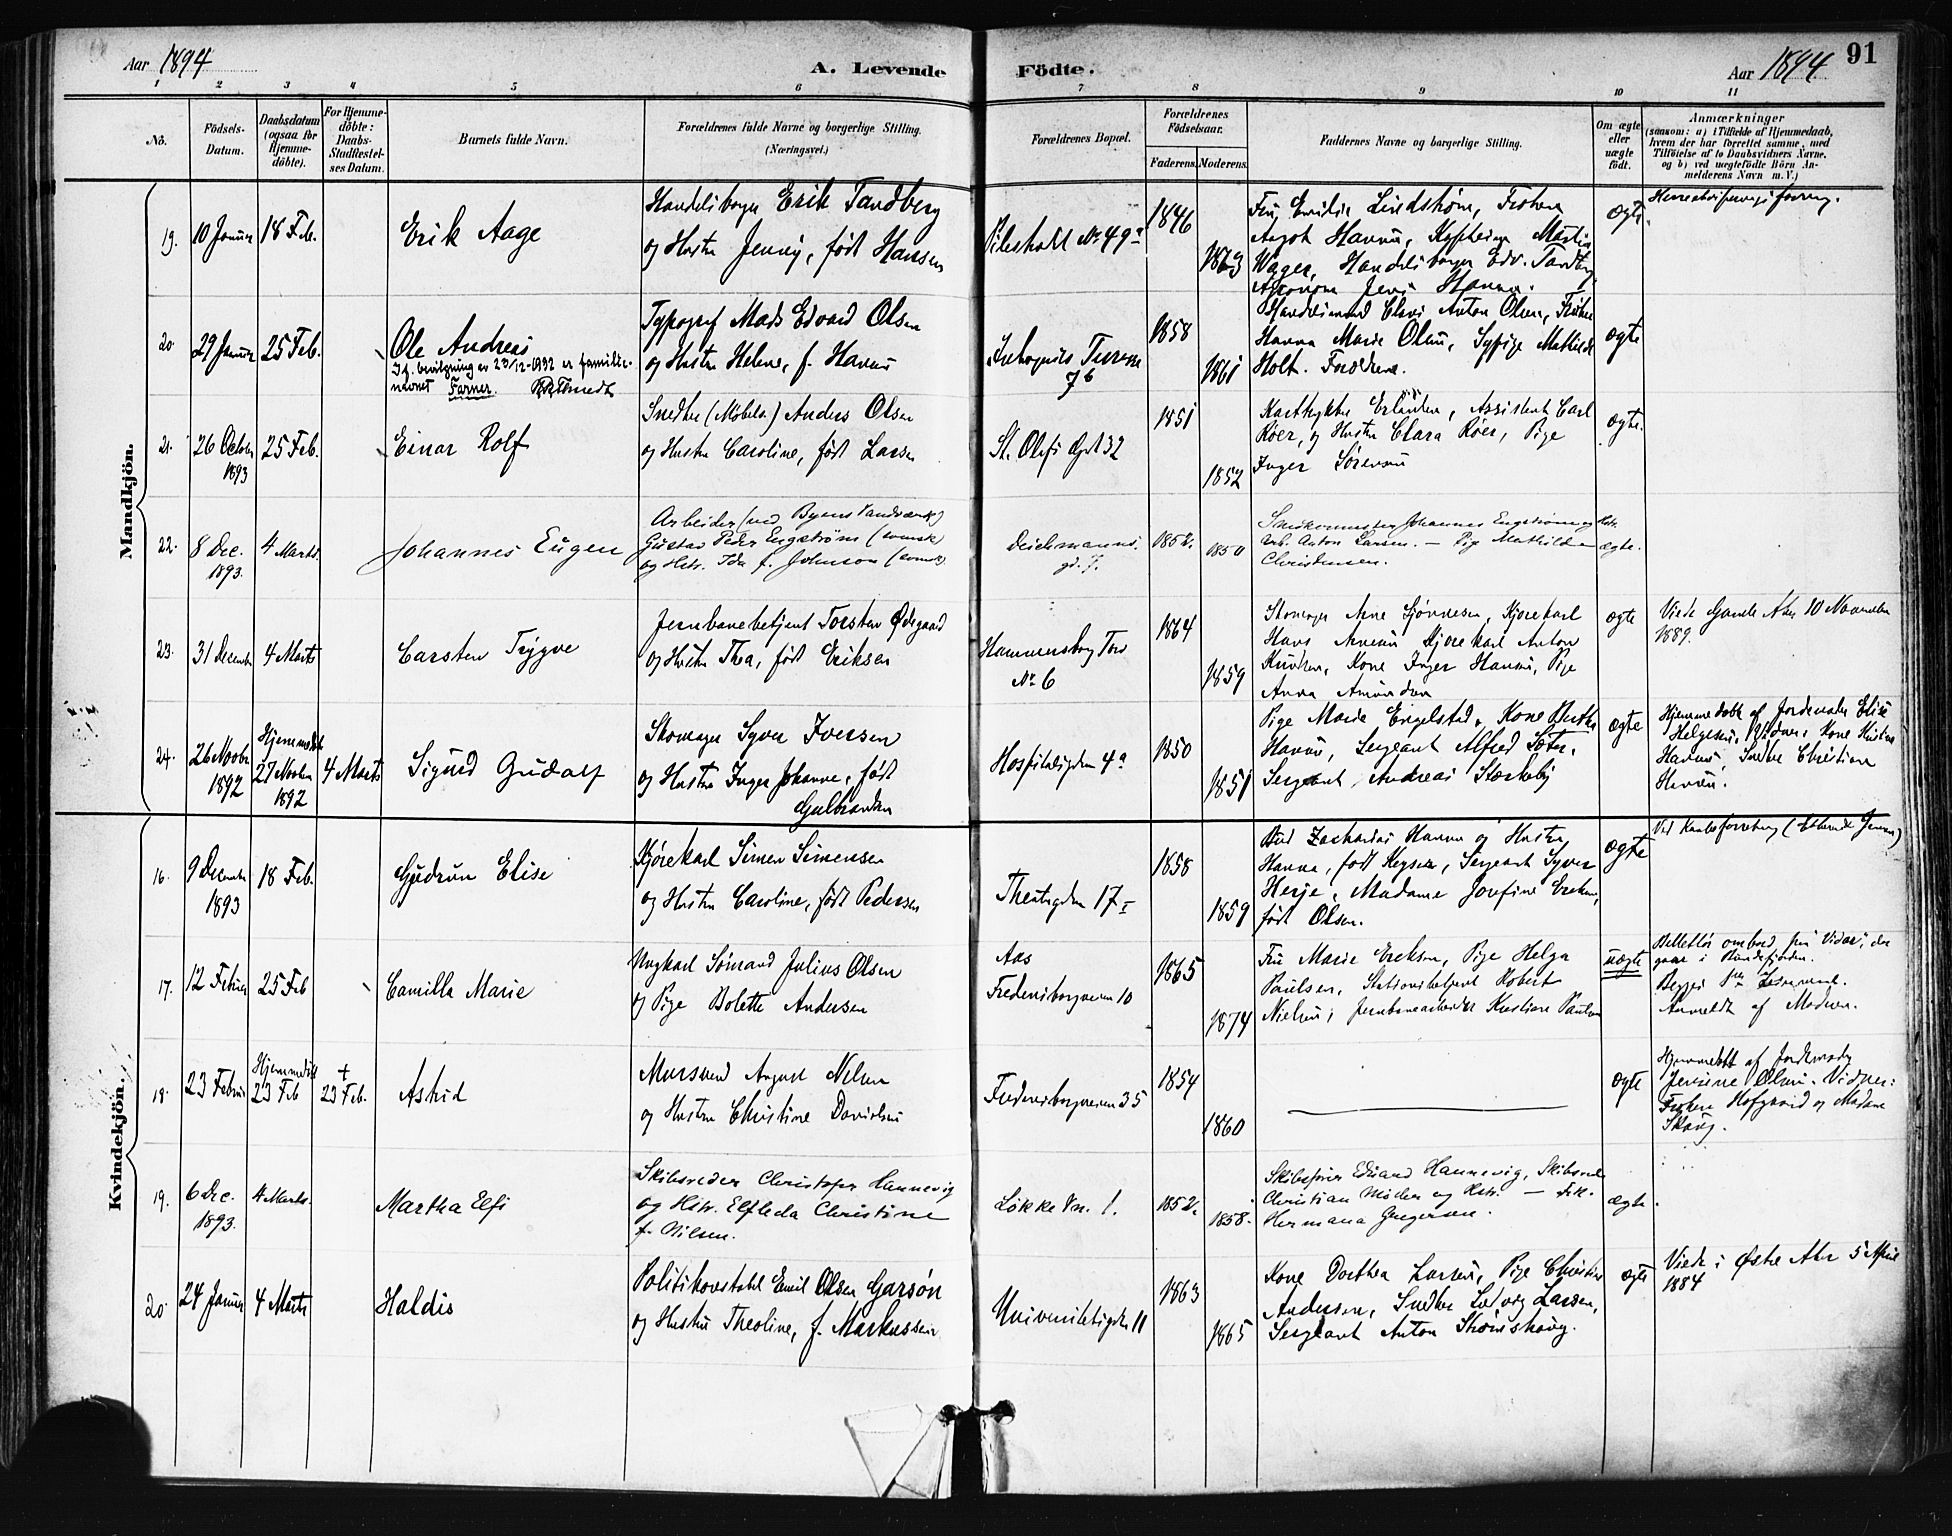 Aar 1894
A. Levende Födte.
Aar 1894
91
1 2 3 4 5 6 7 8 9 10 11
Nö.
Födsels-
Datum.
Daabsdatum
(ogsaa for
Hjemme-
döbte).
For Hjemme-
döbte:
Daabs-
Stadfæstel-
ses Datum.
Barnets fulde Navn.
Forældrenes fulde Navne og borgerlige Stilling.
(Næringsvei.)
Forældrenes Bopæl.
Forældrenes
Födselsaar.
Faderens.
Moderens.
Faddernes Navne og borgerlige Stilling.
Om ægte
eller
uægte
födt.
Anmærkninger
(saasom: a) i Tilfælde af Hjemmedaab,
hvem der har forrettet samme, med
Tilföielse af to Daabsvidners Navne,
og b) ved uægtefödte Börn An-
melderens Navn m. V.)
Mandkjön.
19.
10 Januar
18 Feb.
Erik Aage
Handelsborger Erik Tandberg
og Hustru Jenny, født Hansen
Pilestrædet No 49
1846
1873
Fru Emilie Lindstrøm, Frøken
Aagot Hansen, Martin
Wager, Handelsborger Edv. Tandberg
Agronom Jens Hansen.
ægte.
20.
29 Januar
25 Feb.
Ole Andreas
If. bevilgning av 23/12-1932 er familie-
navnet Farner.
Typograf Mads Edvard Olsen
og Hustru Helene, f. Hansen
7b
1858
1861
Handelsmand Anton Olsen, Frøken
Hanna Marie Olsen, Sypige Mathilde
Holt. Forældrene.
ægte
21.
26 October
1893
25 Feb.
Einar Rolf
Snedker (Møbel) Anders Olsen
og Hustru Caroline, født Larsen
St. Olafs Gd. 32
1851
1852
Erlandsen, Assistent Carl
Röer, og Hustru Clara Röer, Pige
Inger Sørensen
ægte.
22.
8 Dec.
1893.
4 Marts.
Johannes Eugen
Arbeider (ved Byens Vandværk)
Gustav Peder Engström (svensk)
og Hstr. Ida f. Johnson (svensk)
Deichmanns-
gd. 7.
1852.
1850
Johannes Engström og Hstr.
Arb. Anton Larsen. — Pige Mathilde
Christensen.
ægte.
23.
31 December
4 Marts
Carsten Trygve
Jernbanebetjent Torsten Ødegaard
og Hustru Thea, født Eriksen
Hammersborg Torv
No 6
1864
1859
Skomager Arne Gjønnesen, Kjørekarl
Hans Arnesen Kjørekarl Anton
Knudsen, Kone Inger Hansen, Pige
Anna Amundsen
ægte
Viede Gamle Aker 10 November
1889.
24.
26 Novbr
1892
Hjemmedøbt
27 Novbr
1892
4 Marts
Sigurd Gudolf
Skomager Syver Iversen
og Hustru Inger Johanne, født
Gulbrandsen
Hospitalsgaden 4a
1850
1851
Pige Marie Engelstad, Kone Bertha
Hansen, Sergeant Alfred Sæter,
Sergeant Andreas Stærkeby
ægte
Hjemmedøbt af Jordemoder Elise
Helgesen, Vidner: Kone Kristine
Hansen, Snedker Christian
Hansen.
Kvindekjön.
16.
9 December
1893
18 Feb.
Gudrun Elise
Kjørekarl Simen Simensen
og Hustru Caroline, født Pedersen
Theatergaden 17 I
1858
1859
Bud Zacharias Hansen og Hustru
Hanna, født Keyser, Sergeant Syver
Herje, Madame Josefine Eriksen,
født Olsen.
ægte
17.
12 Februar
25 Feb
Camilla Marie
Ungkarl Sømand Julius Olsen
og Pige Bolette Andersen
Aas
Fredensborgveien 10
1865
1874
Fru Marie Eriksen, Pige Helga
Paulsen, Stationsbetjent Robert
Nielsen, Jernbanearbeider Kristian Paulsen
uægte
Billettør ombord paa "Vidar", der
gaar i Bundefjorden.
Begges 1ste Lejermaal.
Anmeldt af Moderen.
18.
23 Februar
Hjemmedøbt
23 Feb
+
23 Feb.
Astrid
Murersvend August Nelson
og Hustru Christine Davidsen
Fredensborgveien 35
1854
1860
ægte
Hjemmedøbt af Jordemoder
Olsen. Vidner:
Frøken Hofgaard og Madame
Skaug.
19.
6 Dec.
1893.
4 Marts.
Martha Elfi
Skibsreder Christoffer Hannevig
og Hstr. Elfleda Christine
f. Nilsen.
Løkke Vn. 1.
1852.
1858.
Skibsfører Edvard Hannevig, Skibsreder
Christian Møller og Hstr. — Frk.
Hermana Gregersen.
ægte.
20.
24 Januar
4 Marts
Haldis
Politikonstabl Emil Olsen Garsön
og Hustru Theoline, f. Markussen
Universitetsgaden 11
1863
1865
Kone Dorthea Larsen, Pige Christine
Andersen, Snedker Ludvig Larsen,
Sergeant Anton
ægte
Viede i Østre Aker 5 April
1884